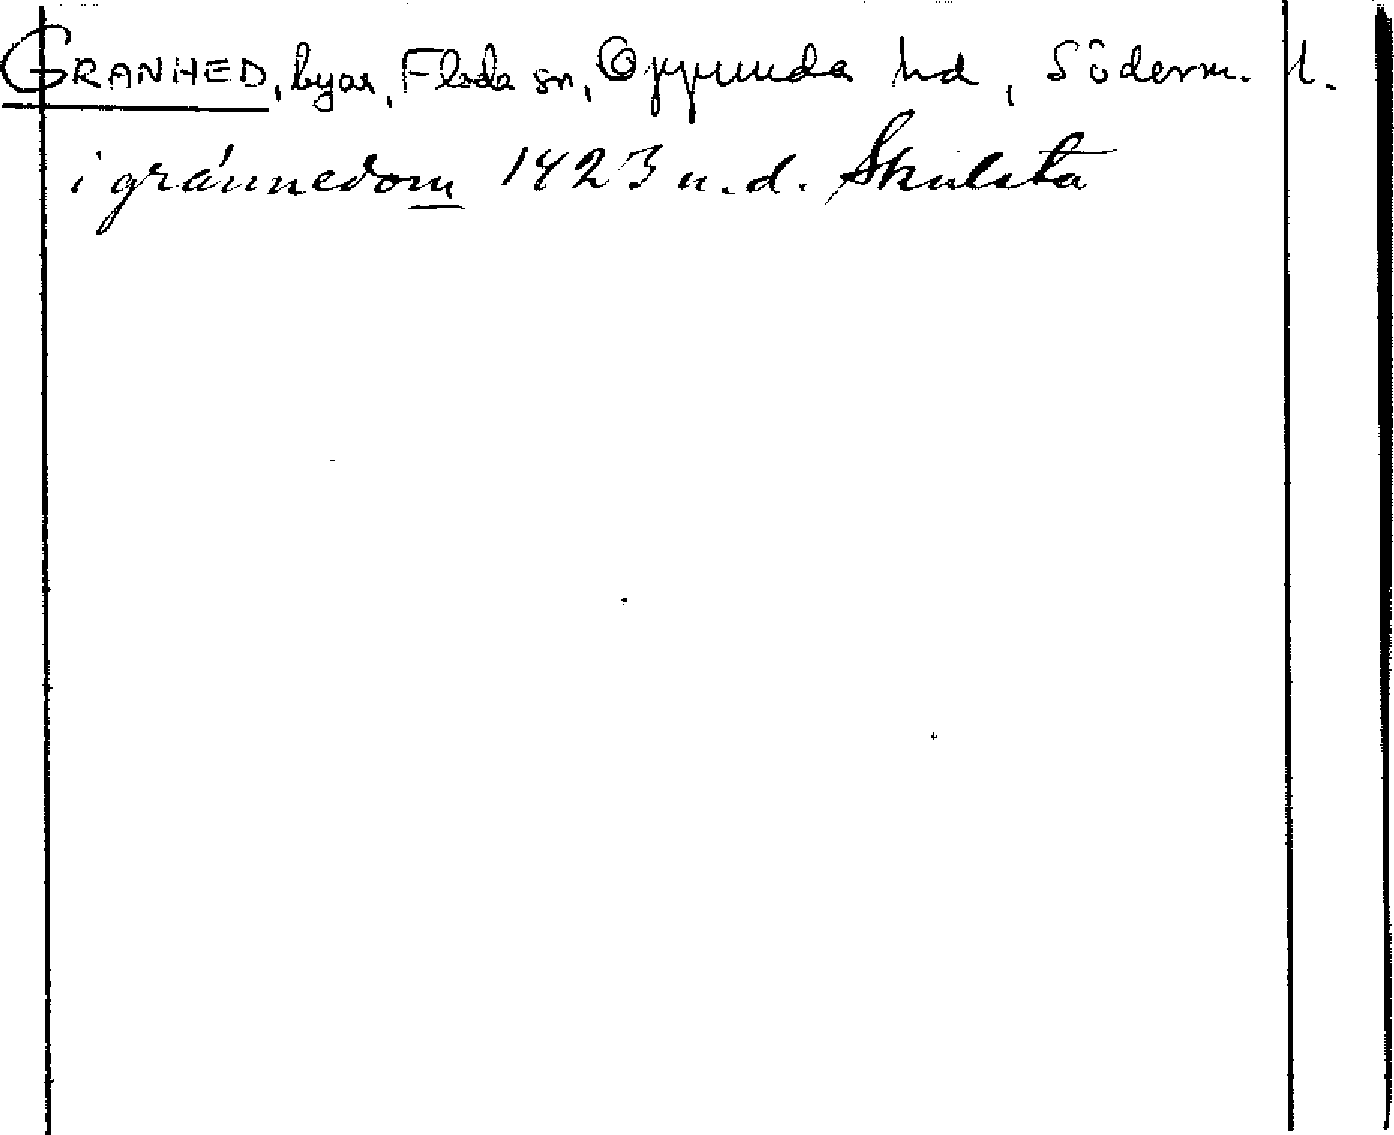 GRANHED, byar, Floda sn, Oppunda hd, Söderm. l.
i gránnedom 1423 u.d. Skulsta